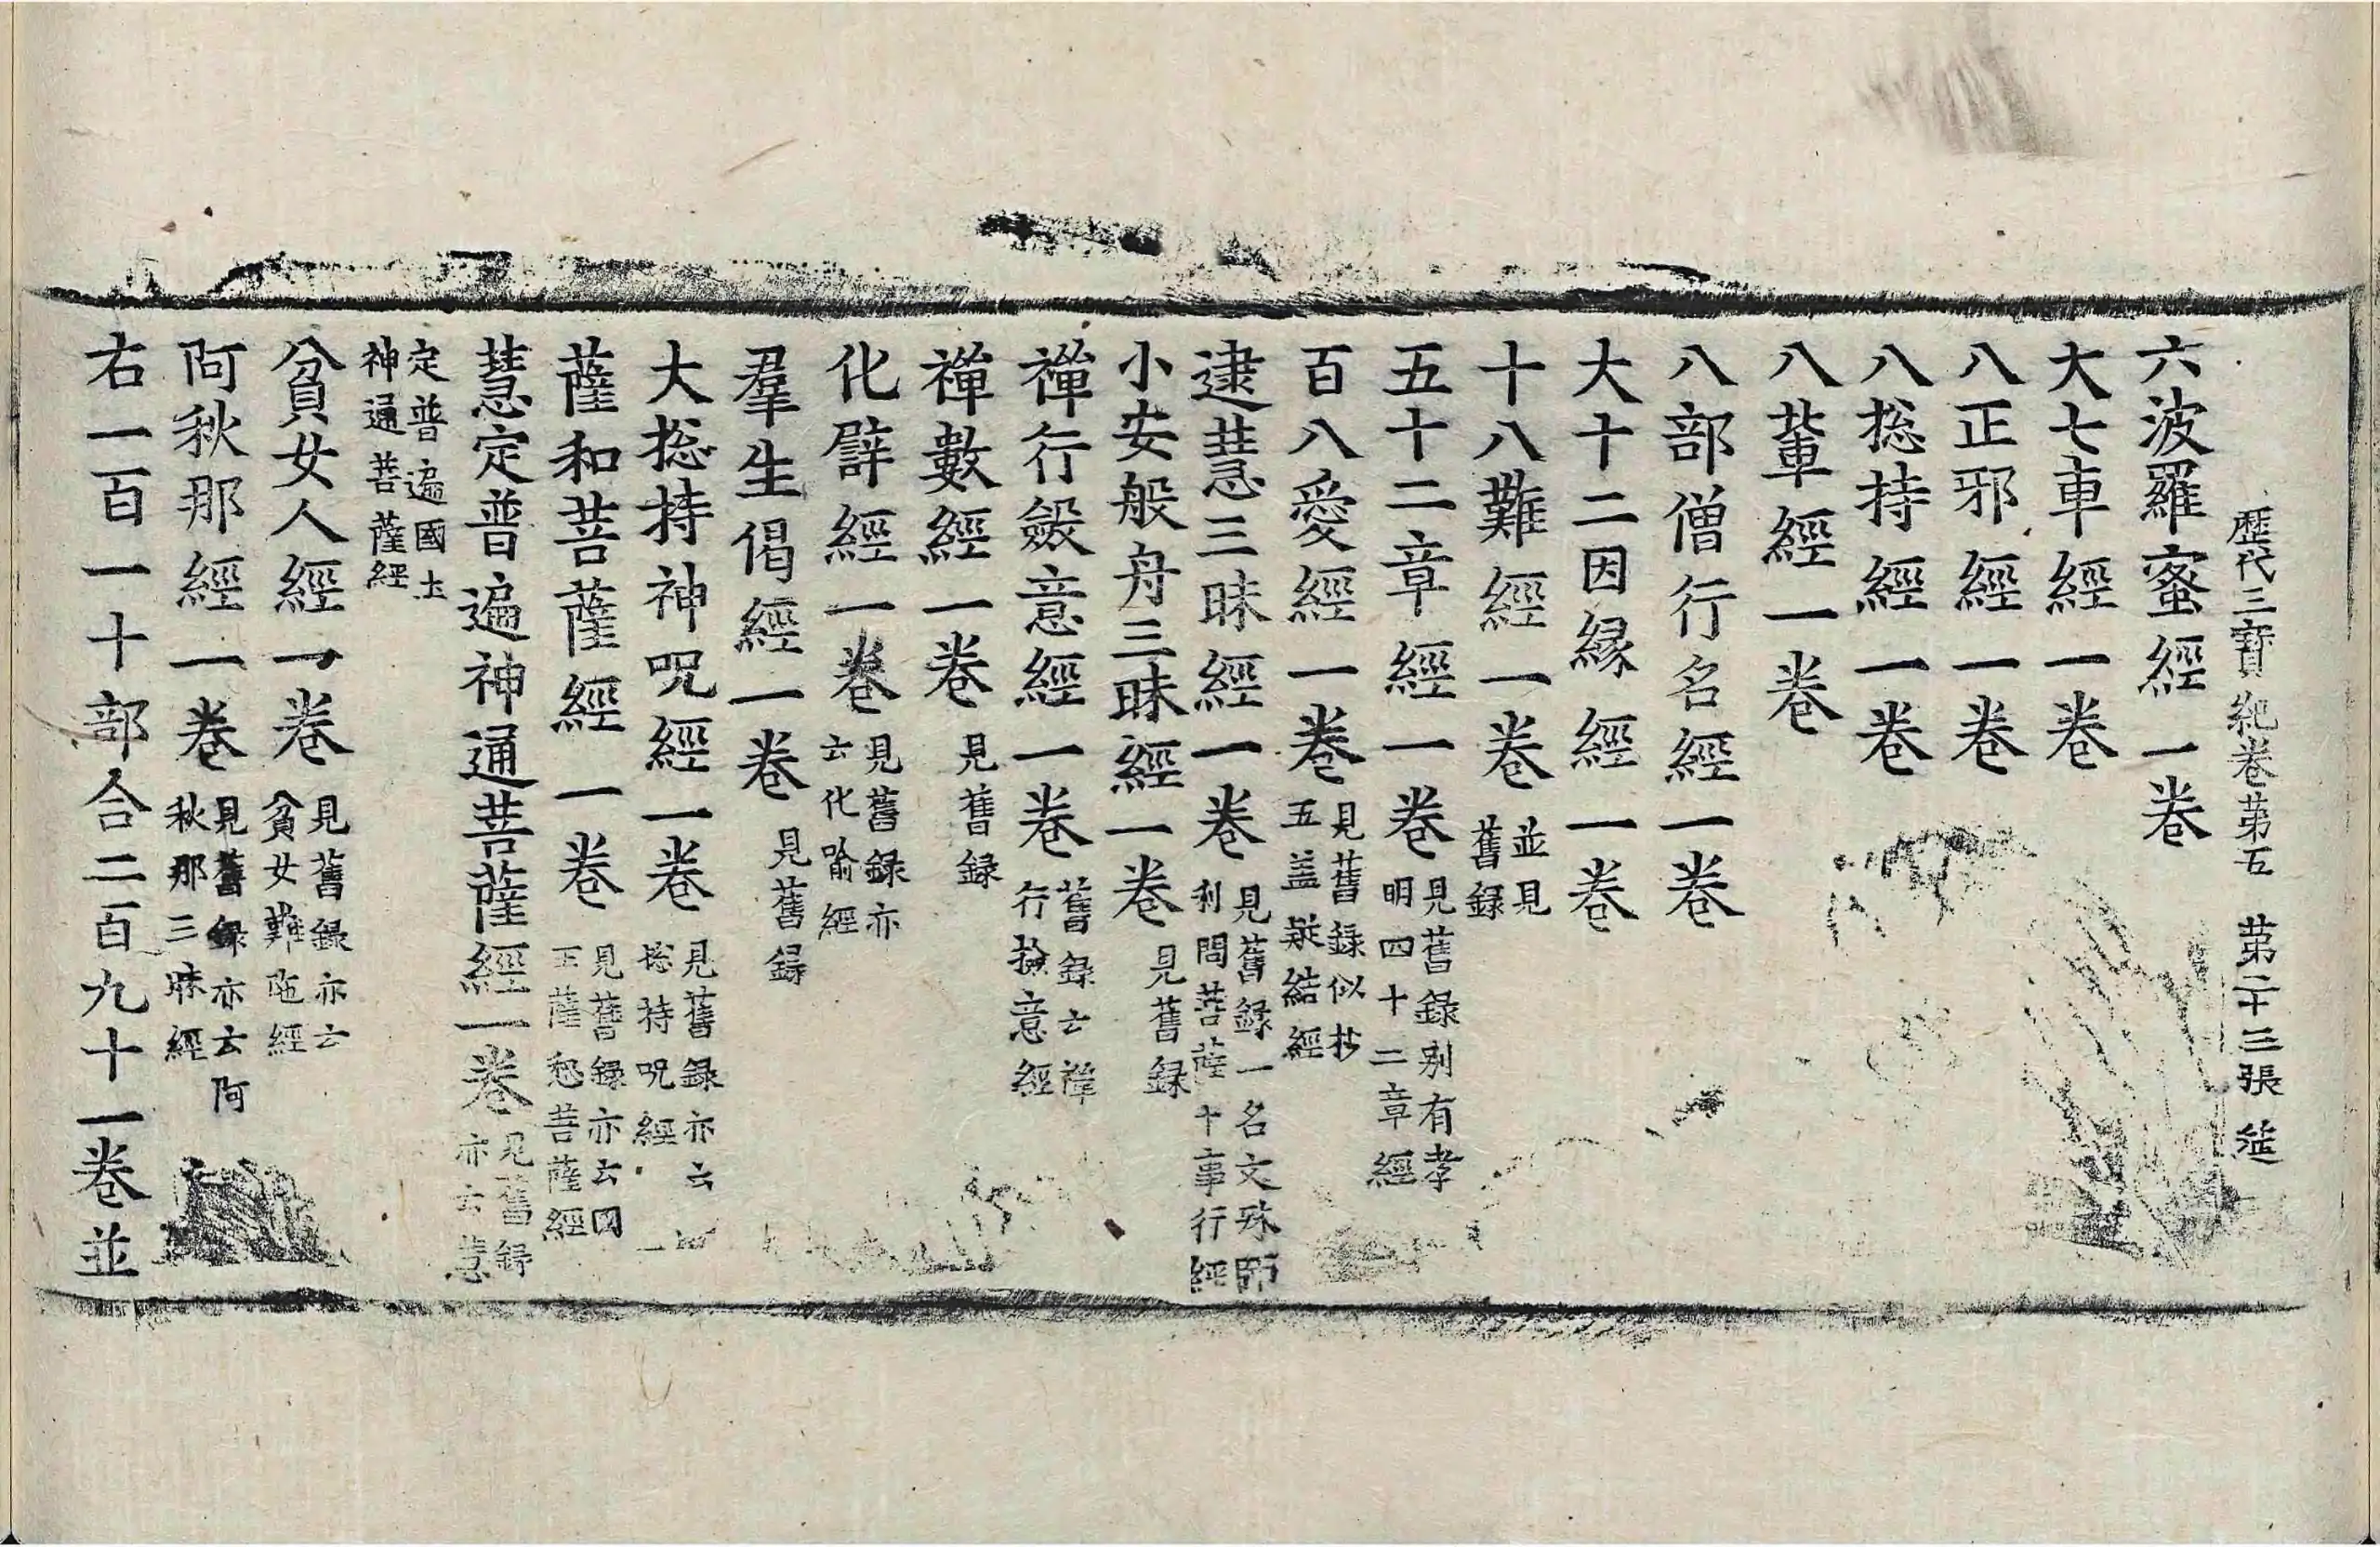 歷代三寶紀卷第五　第二十三張　筵
六波羅蜜經一卷
大七車經一卷
八正邪經一卷
八捴持經一卷
八輩經一卷
八部僧行名經一卷
大十二因縁經一卷
十八難經一卷 並見舊録
五十二章經一卷 見舊録别有孝明四十二章經
百八愛經一卷 見舊録似抄五盖疑結經
逮慧三昧經一卷 見舊録一名文殊師利問菩薩十事行經
小安般舟三昧經一卷 見舊録
禪行斂意經一卷 舊録云禪行撿意經
禪數經一卷 見舊録
化譬經一卷 見舊録亦云化喻經
羣生偈經一卷 見舊録
大捴持神呪經一卷 見舊録亦云捴持呪經
薩和菩薩經一卷 見舊録亦云國王薩惒菩薩經
慧定普遍神通菩薩經一卷 見舊録亦云慧
定普遍國土神通菩薩經
貧女人經一卷 見舊録亦云貧女難陁經
阿秋那經一卷 見舊録亦云阿秋那三昧經
右一百一十部合二百九十一卷並